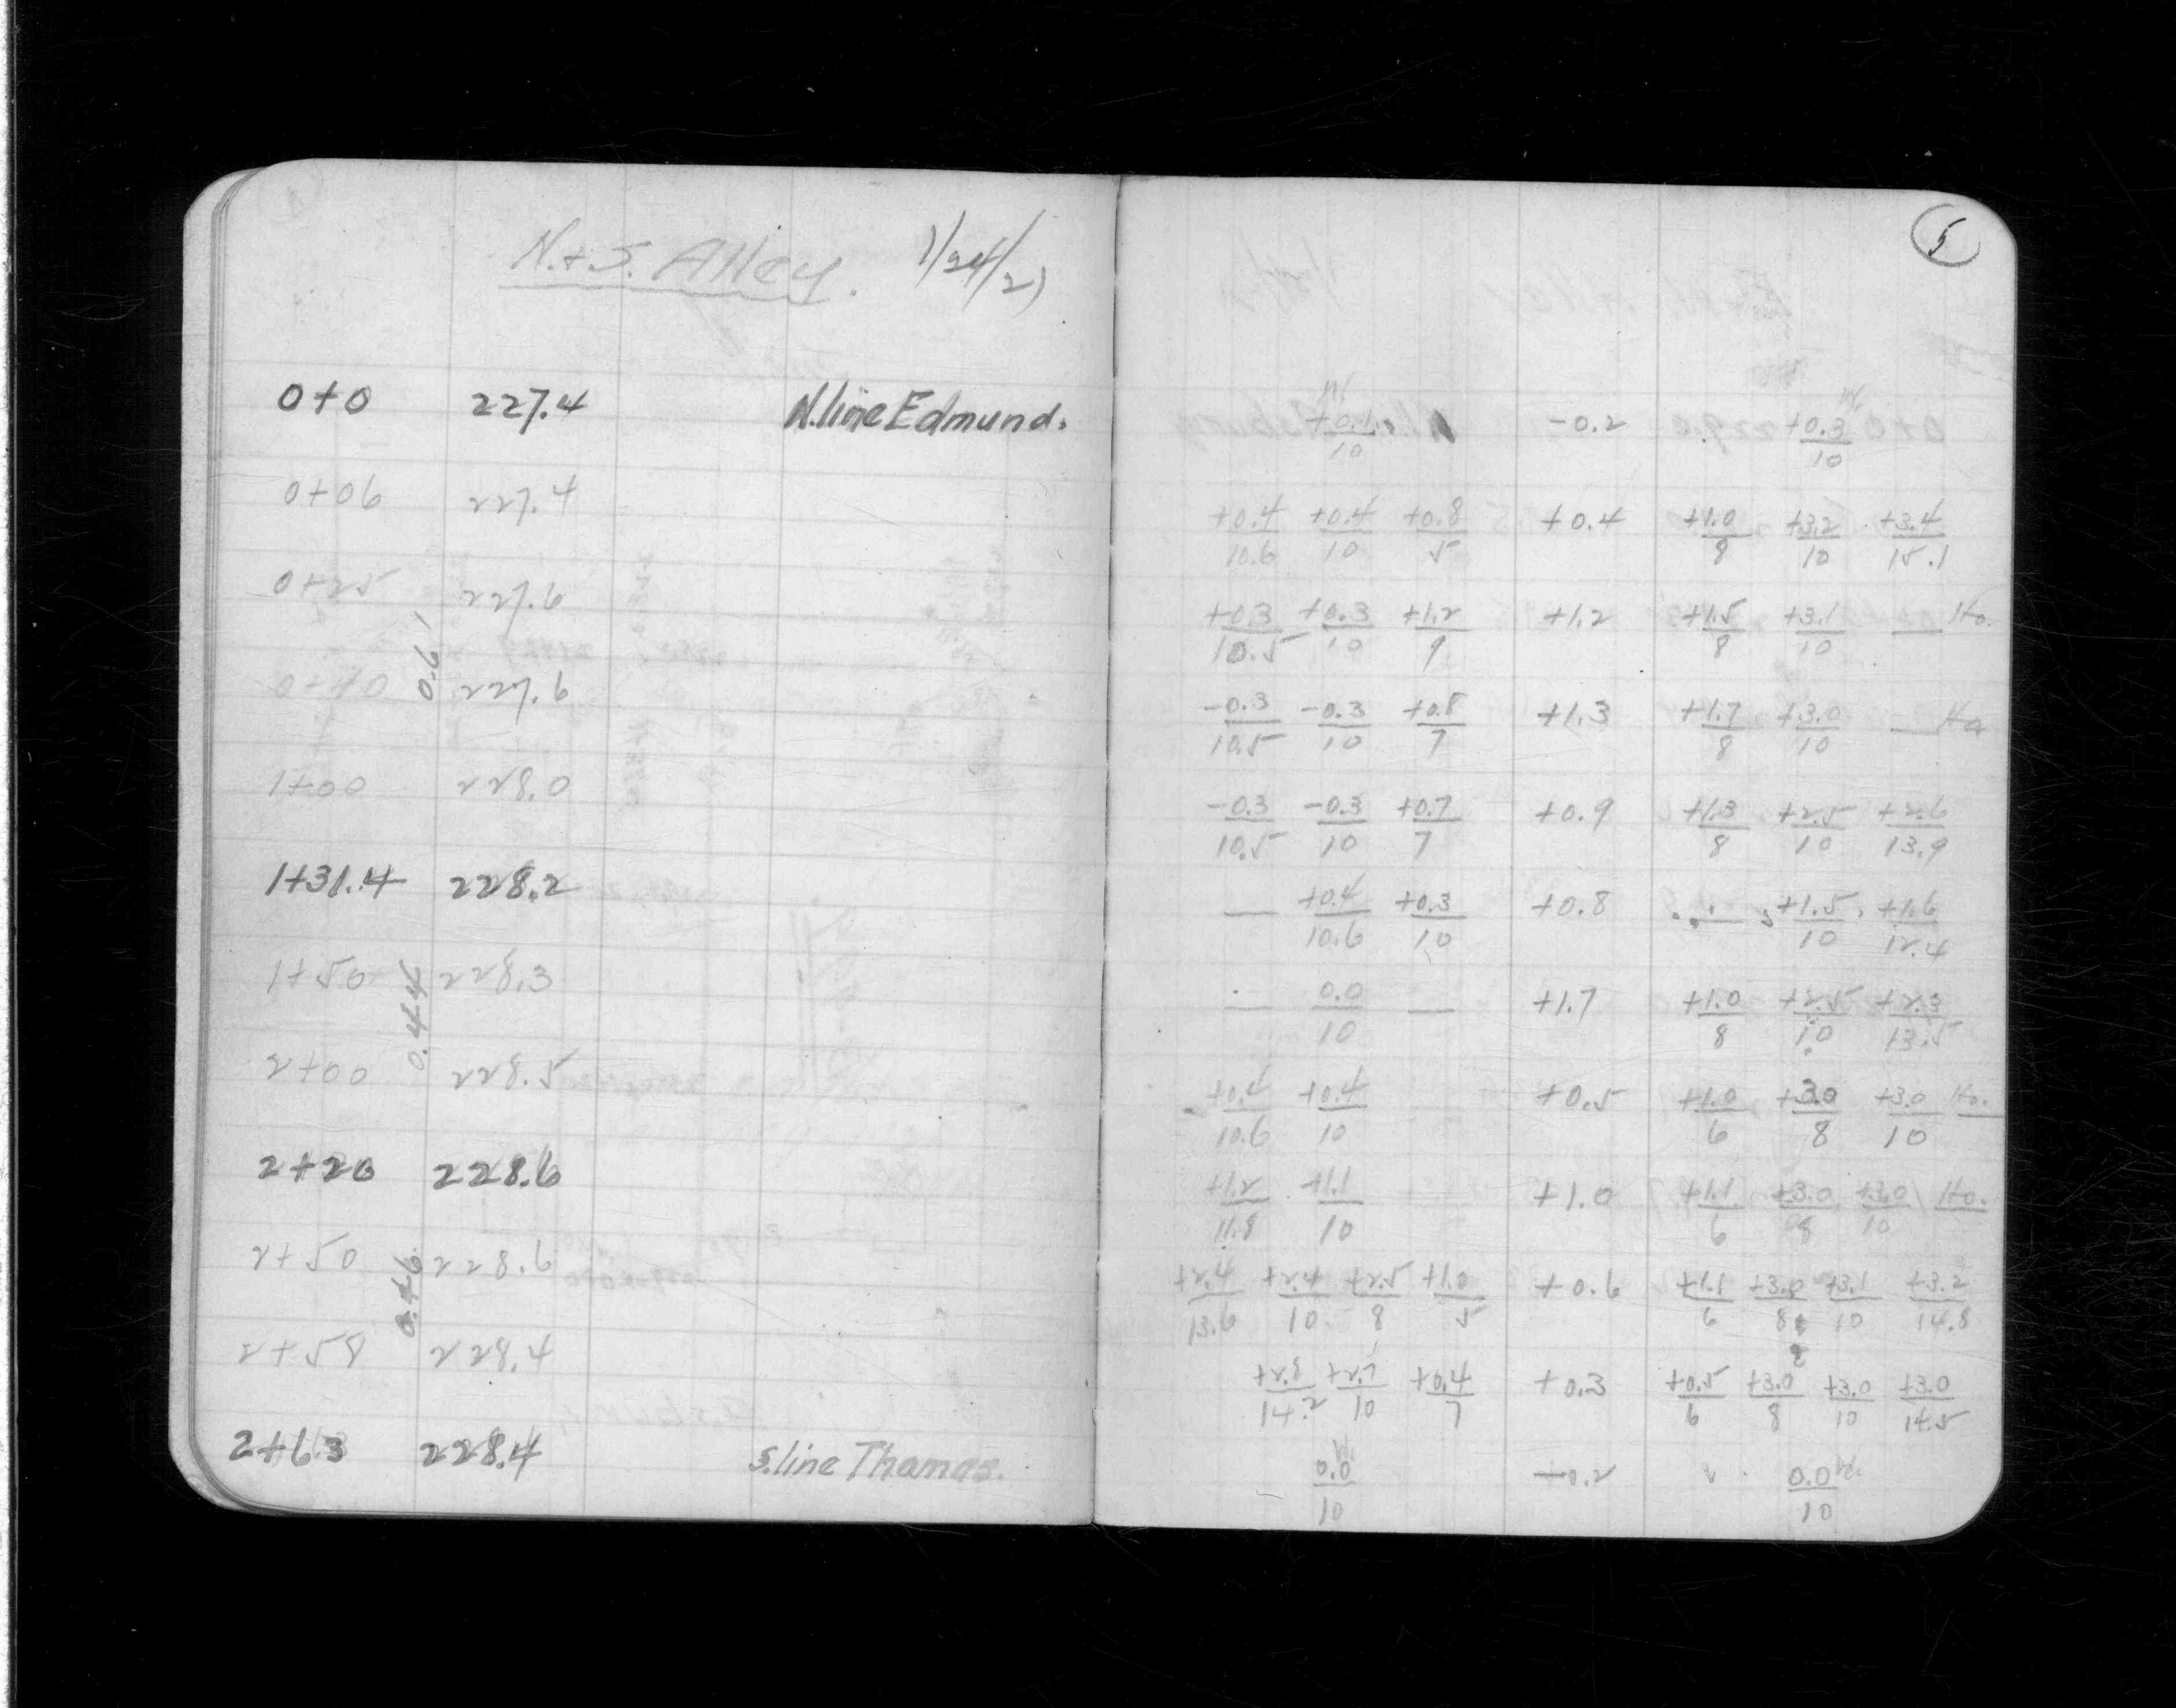 N.+S. Alley. 1/24/21
5
0+0 227.4 N.line Edmund.
+0.1/10 -0.2 +0.3/10
0+06 227.4
+0.4/10.6 +0.4/10 +0.8/5 +0.4 +1.0/8 +3.2/10 +3.4/15.1
0+25 227.6
+0.3/10.5 +0.3/10 +1.2/9 +1.2 +1.5/8 +3.1/10 — Ho.
0.6
0+40 227.6
-0.3/10.5 -0.3/10 +0.8/7 +1.3 +1.7/8 +3.0/10 — Ho
1+00 228.0
-0.3/10.5 -0.3/10 +0.7/7 +0.9 +1.3/8 +2.5/10 +2.6/13.9
1+31.4 228.2
— +0.4/10.6 +0.3/10 +0.8 — +1.5/10 +1.6/12.4
1+50 228.3
— 0.0/10 — +1.7 +1.0/8 +2.5/10 +2.3/13.5
0.44
2+00 228.5
+0.4/10.6 +0.4/10 +0.5 +1.0/6 +3.0/8 +3.0/10 Ho.
2+20 228.6
+1.2/11.8 +1.1/10 +1.0 +1.1/6 +3.0/8 +3.0/10 Ho.
2+50 228.6
+2.4/13.6 +2.4/10 +2.5/8 +1.0/5 +0.6 +1.1/6 +3.0/8 +3.1/10 +3.2/14.8
2+58 228.4
+2.8/14.2 +2.7/10 +0.4/7 +0.3 +0.5/6 +3.0/8 +3.0/10 +3.0/14.5
2+63 228.4 S.line Thomas.
0.0/10 -0.2 0.0/10